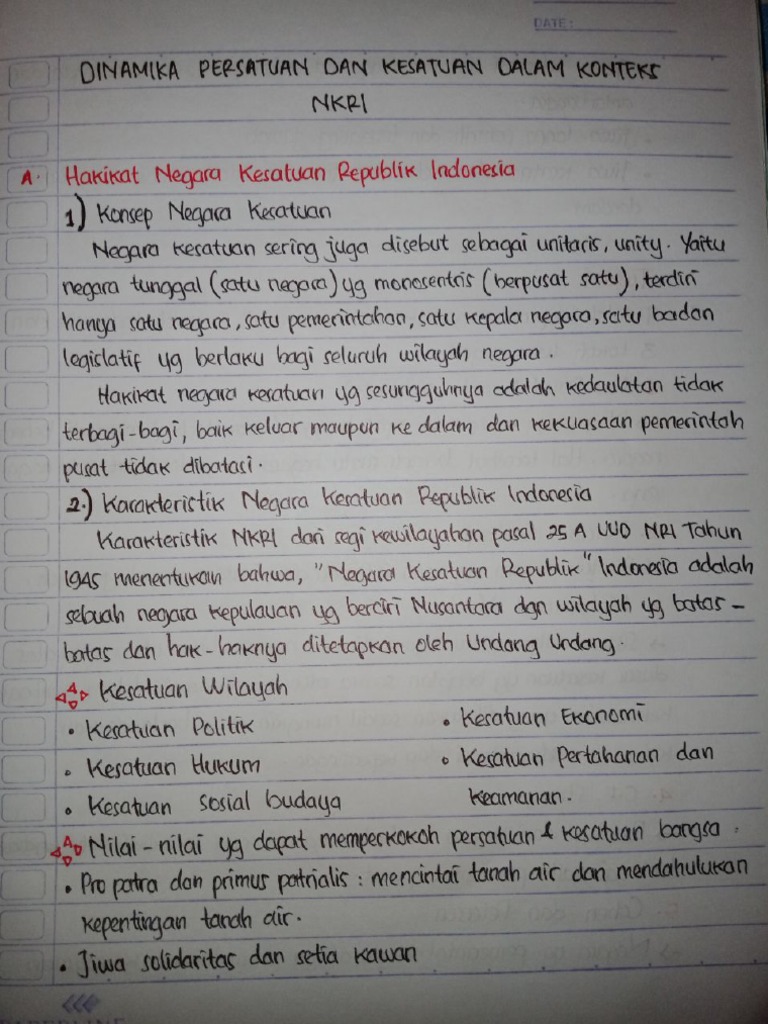 DATE:
DINAMIKA PERSATUAN DAN KESATUAN DALAM KONTEKS
NKRI
A. Hakikat Negara Kesatuan Republik Indonesia
1) Konsep Negara Kesatuan
Negara kesatuan sering juga disebut sebagai unitaris, unity. Yaitu
negara tunggal (satu negara) yg monosentris (berpusat satu), terdiri
hanya satu negara, satu pemerintahan, satu kepala negara, satu badan
legislatif yg berlaku bagi seluruh wilayah negara.
Hakikat negara kesatuan yg sesungguhnya adalah kedaulatan tidak
terbagi-bagi, baik keluar maupun ke dalam dan kekuasaan pemerintah
pusat tidak dibatasi.
2.) Karakteristik Negara Kesatuan Republik Indonesia
Karakteristik NKRI dari segi kewilayahan pasal 25 A UUD NRI Tahun
1945 menentukan bahwa, "Negara Kesatuan Republik" Indonesia adalah
sebuah negara kepulauan yg berciri Nusantara dgn wilayah yg batas-
batas dan hak-haknya ditetapkan oleh Undang Undang.
Kesatuan Wilayah
• Kesatuan Politik • Kesatuan Ekonomi
• Kesatuan Hukum • Kesatuan Pertahanan dan
• Kesatuan sosial budaya Keamanan.
Nilai-nilai yg dapat memperkokoh persatuan & kesatuan bangsa:
• Pro patra dan primus patrialis : mencintai tanah air dan mendahulukan
kepentingan tanah air.
• Jiwa solidaritas dan setia kawan